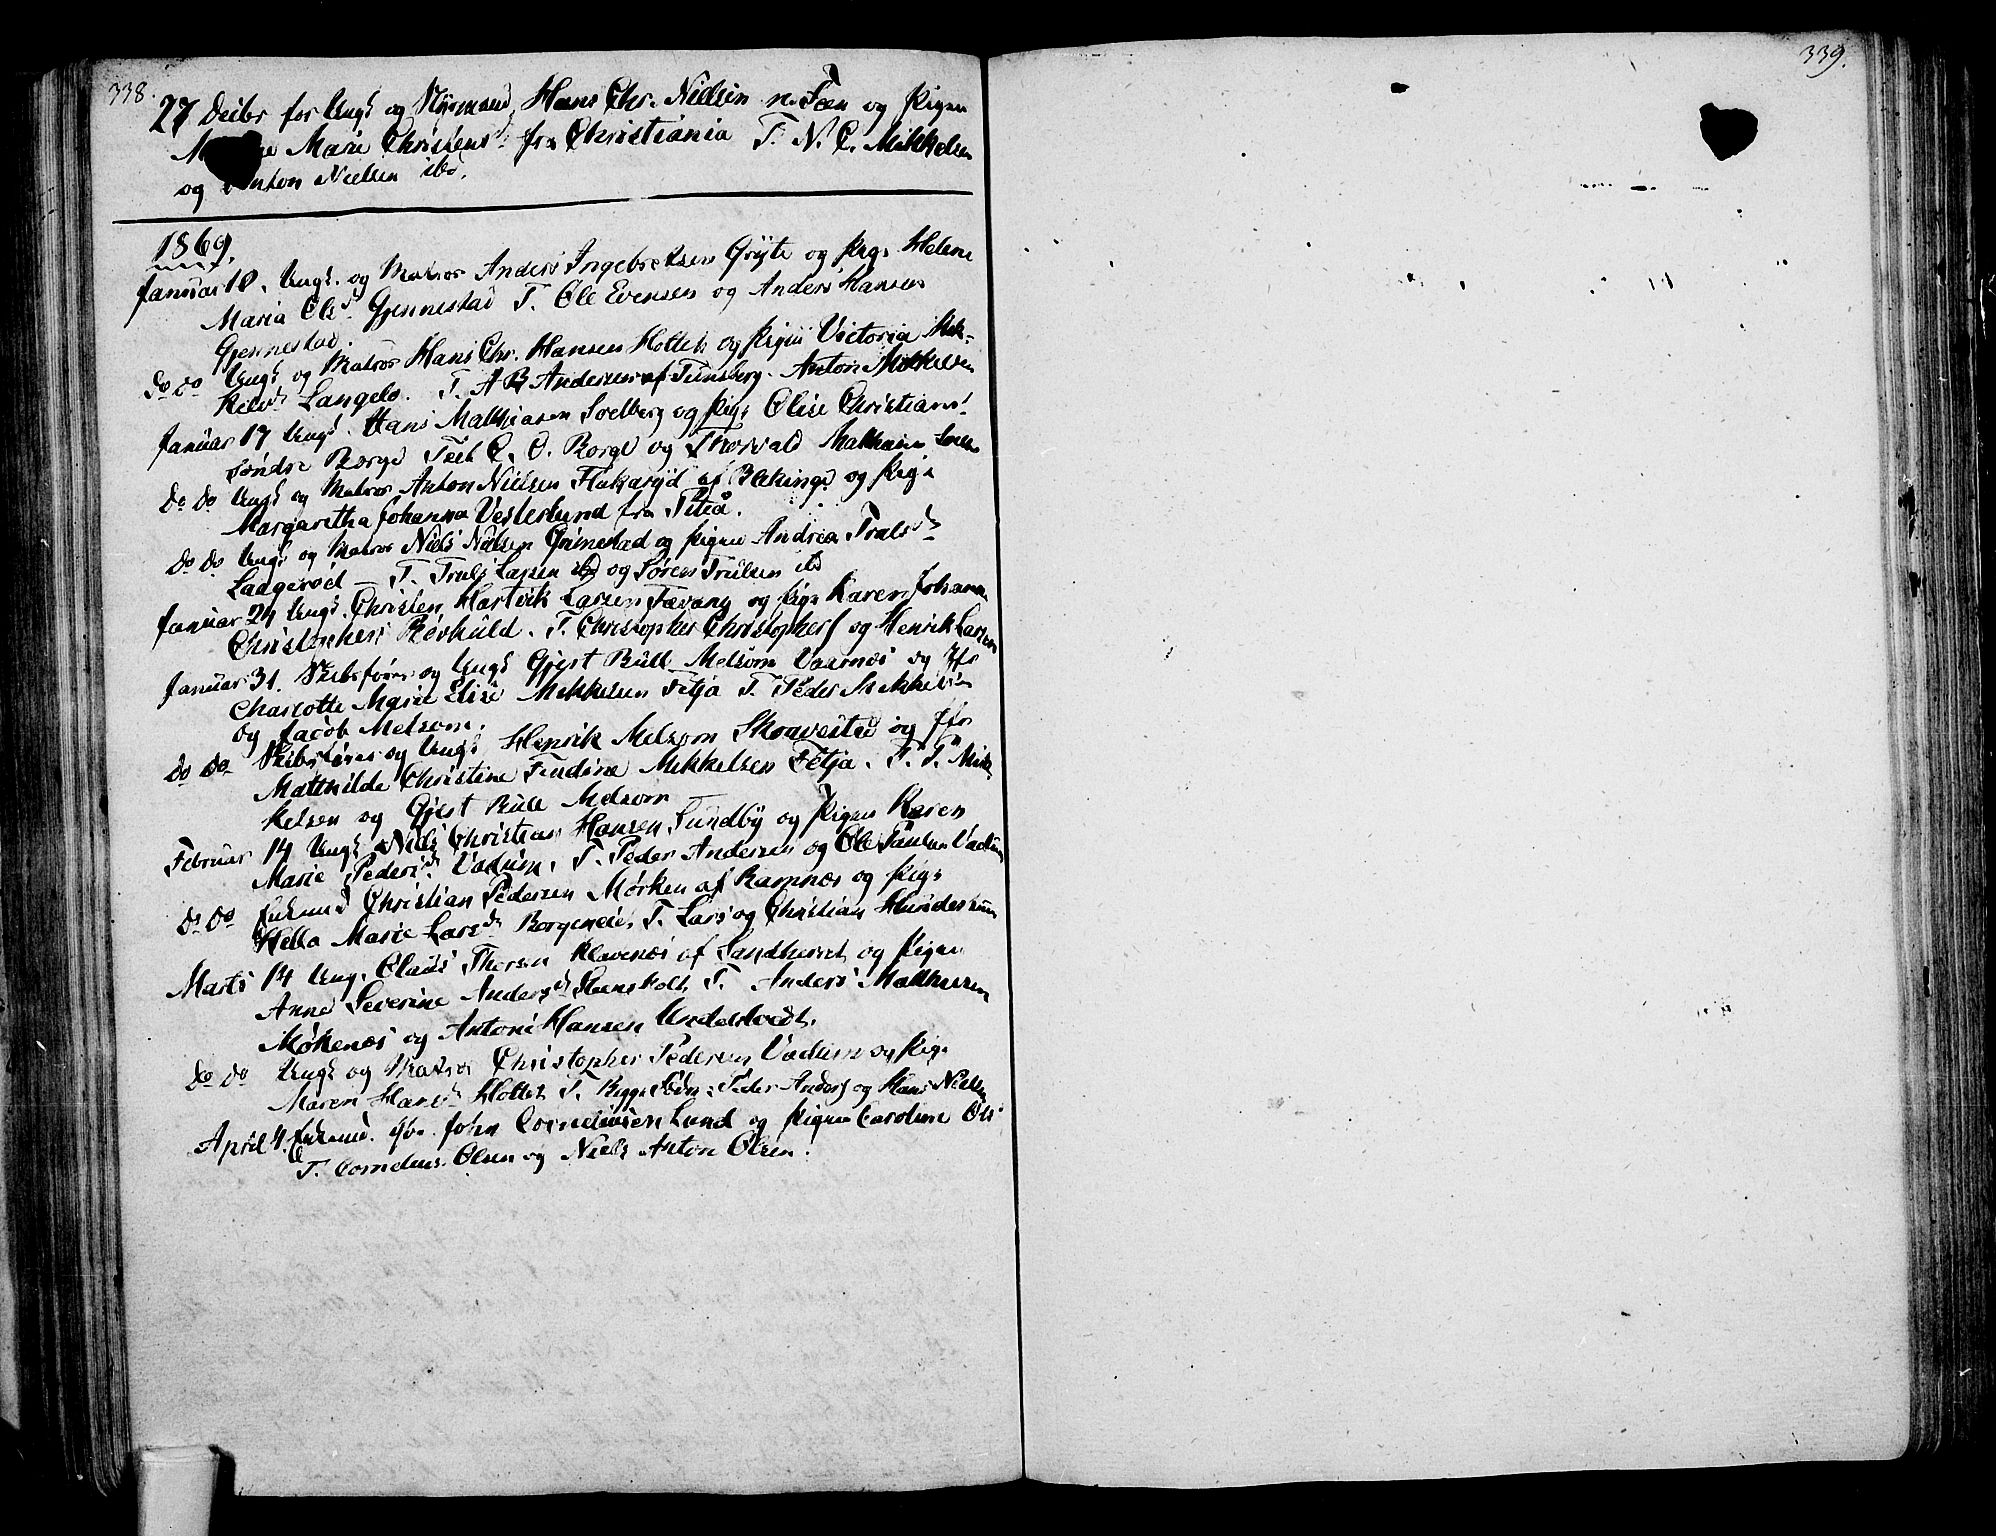 338.
339.
27 Decbr for Ungk og Styrmand Hans Chr. Nielsen n. Fæn og Pigen
Marie Christensd. fra Christiania T. N. C. Mikkelsen
og Anton Nielsen ibd.
1869.
Januar 10. Ungk. og Matros Anders Ingebretsen Gryte og Pige Helene
Maria Olsd. Gjennestad T. Ole Evensen og Anders Hansen
Gjennestad.
do do Ungk og Matros Hans Chr. Hansen Hotteb og Pigen Victoria Mik-
kelsd. Langelo. T. A B Andersen af Tunsberg. Anton Mikkelsen
Januar 17 Ungk. Hans Mathiasen Soelberg og Pige Olise Christiansd.
søndre Borge T. C. O. Borge og Thorvald Mathiasen
do do Ungk og Matros Anton Nielsen af Blekinge og Pige
Margaretha Johanna Vesterlund fra Piteå.
do do Ungk og Matros Niels Nielsen Grimestad og Pigen Andrea Trulsd.
Laagerød – T. Truls Larsen ibd og Søren Trulsen ibd
Januar 24 Ungk. Christen Hartvik Larsen Fævang og Pige Karen Johanne
Christophersd. Røvkuld. T. Christopher Christophers og Henrik Larsen
Januar 31. Skibsfører og Ungk Gjert Bull Melsom Vaarnes og Jfr
Charlotte Marie Elise Mikkelsen Fetja T. Peder Mikkelsen
og Jacob Melsom.
do do Skibsfører og Ungk Henrik Melsom Skravestad og Jfr
Mathilde Christine Mikkelsen Fetja. T. P. Mik-
kelsen og Gjert Bull Melsom
Februar 14 Ungk Niels Christian Hansen Sundby og Pigen Karen
Marie Pedersd. Vadum. T. Peder Andersen og Ole Paulsen Vadum
do do Enkemd Christian Pedersen Mørken af Ramnæs og Pige
Hella Marie Larsd. Borgeneie. T. Lars og Christian
Marts 14 Ung. Claus Thorsen Klavenæs af Sandherret og Pigen
Anne Severine Andersd. Stensholt T. Anders Mathisen
Møkenæs og Antoni Hansen Understvedt.
do do Ungk og Matros Christopher Pedersen Vadum og Pige
Maren Hansd. Hotteb T. Bygge Fdm: Peder Anders og Hans Nielsen
April 4. Enkemd. John Corneliusen Lund og Pigen Caroline Ols
T. Cornelius Olsen og Niels Anton Olsen.